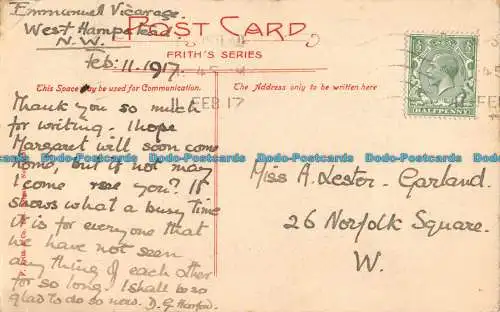 Emmanuel Vicarage
West Hampstead
N.W.
POST CARD
FRITH'S SERIES
Feb: 11. 1917.
This Space may be used for Communication.
The Address only to be written here
FEB 17
HALFPENNY
Thank you so much
for writing. I hope
Margaret will soon come
home, but if not may
I come & see you? It
shows what a busy time
it is for everyone that
we have not seen
anything of each other
for so long. I shall be so
glad to do so now. D. G. Harford.
Miss A. Lester-Garland.
26 Norfolk Square.
W.
Dodo-Postcards Dodo-Postcards Dodo-Postcards Dodo-Postcards Dodo-Postcards Dodo-Postcards